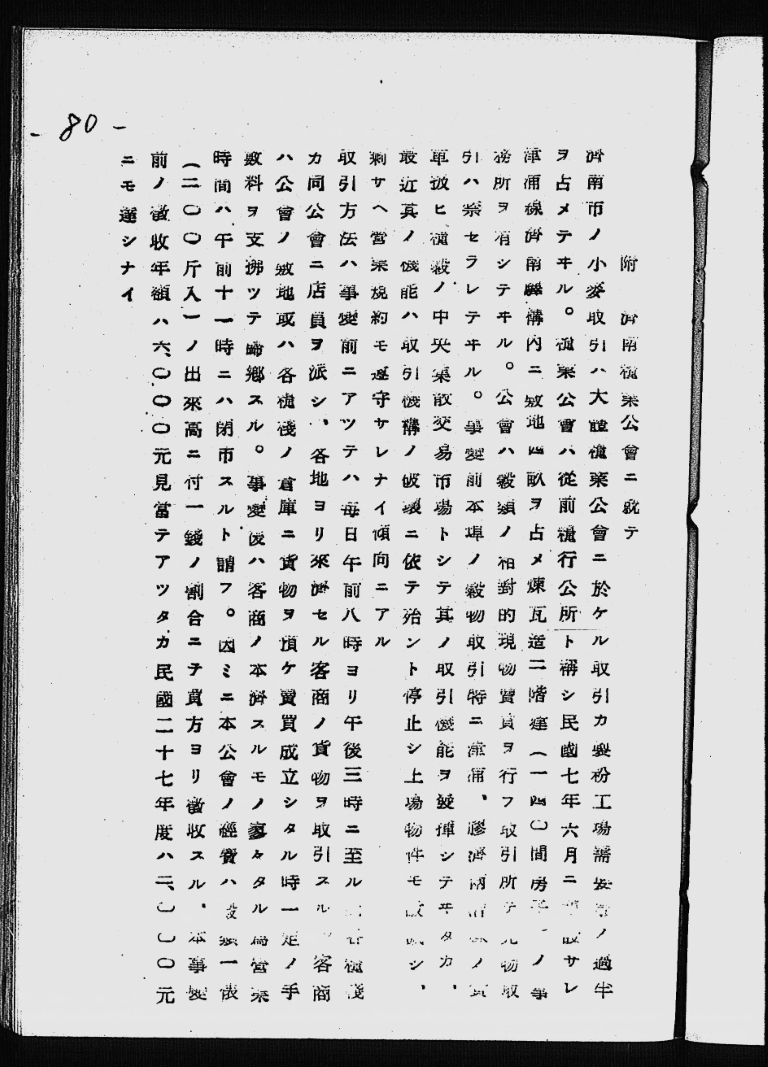 - 80 -
附 濟南糧業公會ニ就テ
濟南市ノ小麥取引ハ大體糧業公會ニ於ケル取引カ製粉工場需要等ノ過半
ヲ占メテヰル。糧業公會ハ從前糧行公所ト稱シ民國七年六月ニ設サレ
津浦線濟南驛構内ニ敷地四畝ヲ占メ煉瓦造二階建(一四〇間房子)ノ事
務所ヲ有シテヰル。公會ハ穀類ノ相對的現物賣買ヲ行フ取引所テ先物取
引ハ禁セラレテヰル。事變前本埠ノ穀物取引特ニ津浦、膠濟兩沿線ノ貨
車扱ヒ糧穀ノ中央集散交易市場トシテ其ノ取引機能ヲ發揮シテヰタカ、
最近其ノ機能ハ取引機構ノ破壞ニ依テ殆ント停止シ上場物件モ減シ、
剩サヘ營業規約モ遵守サレナイ傾向ニアル
取引方法ハ事變前ニアツテハ毎日午前八時ヨリ午後三時ニ至ル各糧棧
カ同公會ニ店員ヲ派シ、各地ヨリ來濟セル客商ノ貨物ヲ取引スル。客商
ハ公會ノ敷地或ハ各糧棧ノ倉庫ニ貨物ヲ預ケ賣買成立シタル時一定ノ手
數料ヲ支拂ツテ歸鄕スル。事變後ハ客商ノ本濟スルモノ寥々タル爲營業
時間ハ午前十一時ニハ閉市スルト謂フ。因ミニ本公會ノ經費ハ穀類一俵
(二〇〇斤入)ノ出來高ニ付一錢ノ割合ニテ買方ヨリ徴收スル、本事變
前ノ徴收年額ハ六、〇〇〇元見當テアツタカ民國二十七年度ハ二、〇〇〇元
ニモ達シナイ